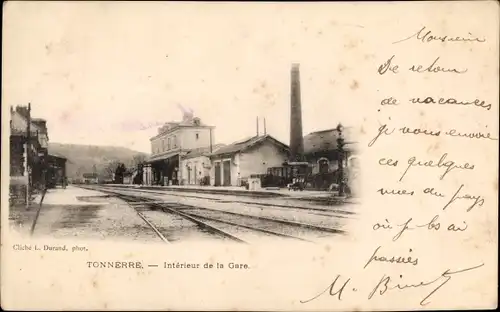 Monsieur
De retour
de vacances
je vous envoie
ces quelques
vues du pays
où je les ai
passées
Cliché L. Durand, phot.
TONNERRE, — Intérieur de la Gare.